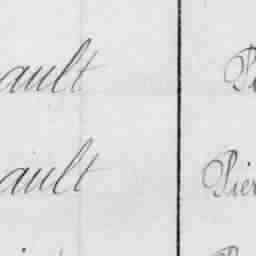 ault P
ault Pier